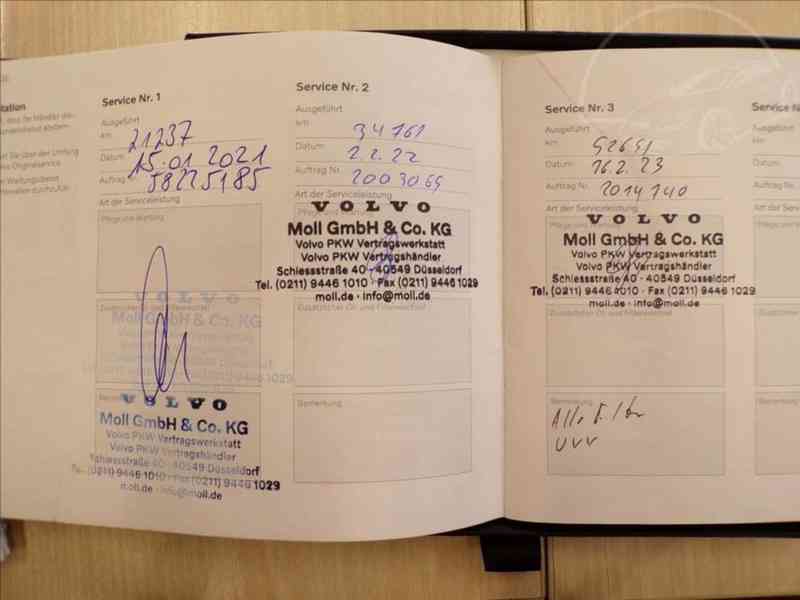 Service Nr. 1
Ausgeführt
km 21237
Datum 15.01.2021
Auftrag 58225185
Art der Serviceleistung
Pflege und Wartung
VOLVO
Moll GmbH & Co. KG
VOLVO
Moll GmbH & Co. KG
Volvo PKW Vertragswerkstatt
Volvo PKW Vertragshändler
Schiessstraße 40 - 40549 Düsseldorf
Tel. (0211) 9446 1010 - Fax (0211) 9446 1029
moll.de - info@moll.de
Service Nr. 2
Ausgeführt
km 34761
Datum: 2.2.22
Auftrag Nr. 2003069
Art der Serviceleistung
VOLVO
Moll GmbH & Co. KG
Volvo PKW Vertragswerkstatt
Volvo PKW Vertragshändler
Schiessstraße 40 - 40549 Düsseldorf
Tel. (0211) 9446 1010 - Fax (0211) 9446 1029
moll.de - info@moll.de
Zusätzlicher Öl- und Filterwechsel
Bemerkung
Service Nr. 3
Ausgeführt
km
Datum: 16.2.23
Auftrag Nr. 2014140
Art der Serviceleistung
VOLVO
Moll GmbH & Co. KG
Volvo PKW Vertragswerkstatt
Volvo PKW Vertragshändler
Schiessstraße 40 - 40549 Düsseldorf
Tel. (0211) 9446 1010 - Fax (0211) 9446 1029
moll.de - info@moll.de
Zusätzlicher Öl- und Filterwechsel
Bemerkung
Alle
Service
Ausgeführt
km
Datum:
Auftrag
Art der